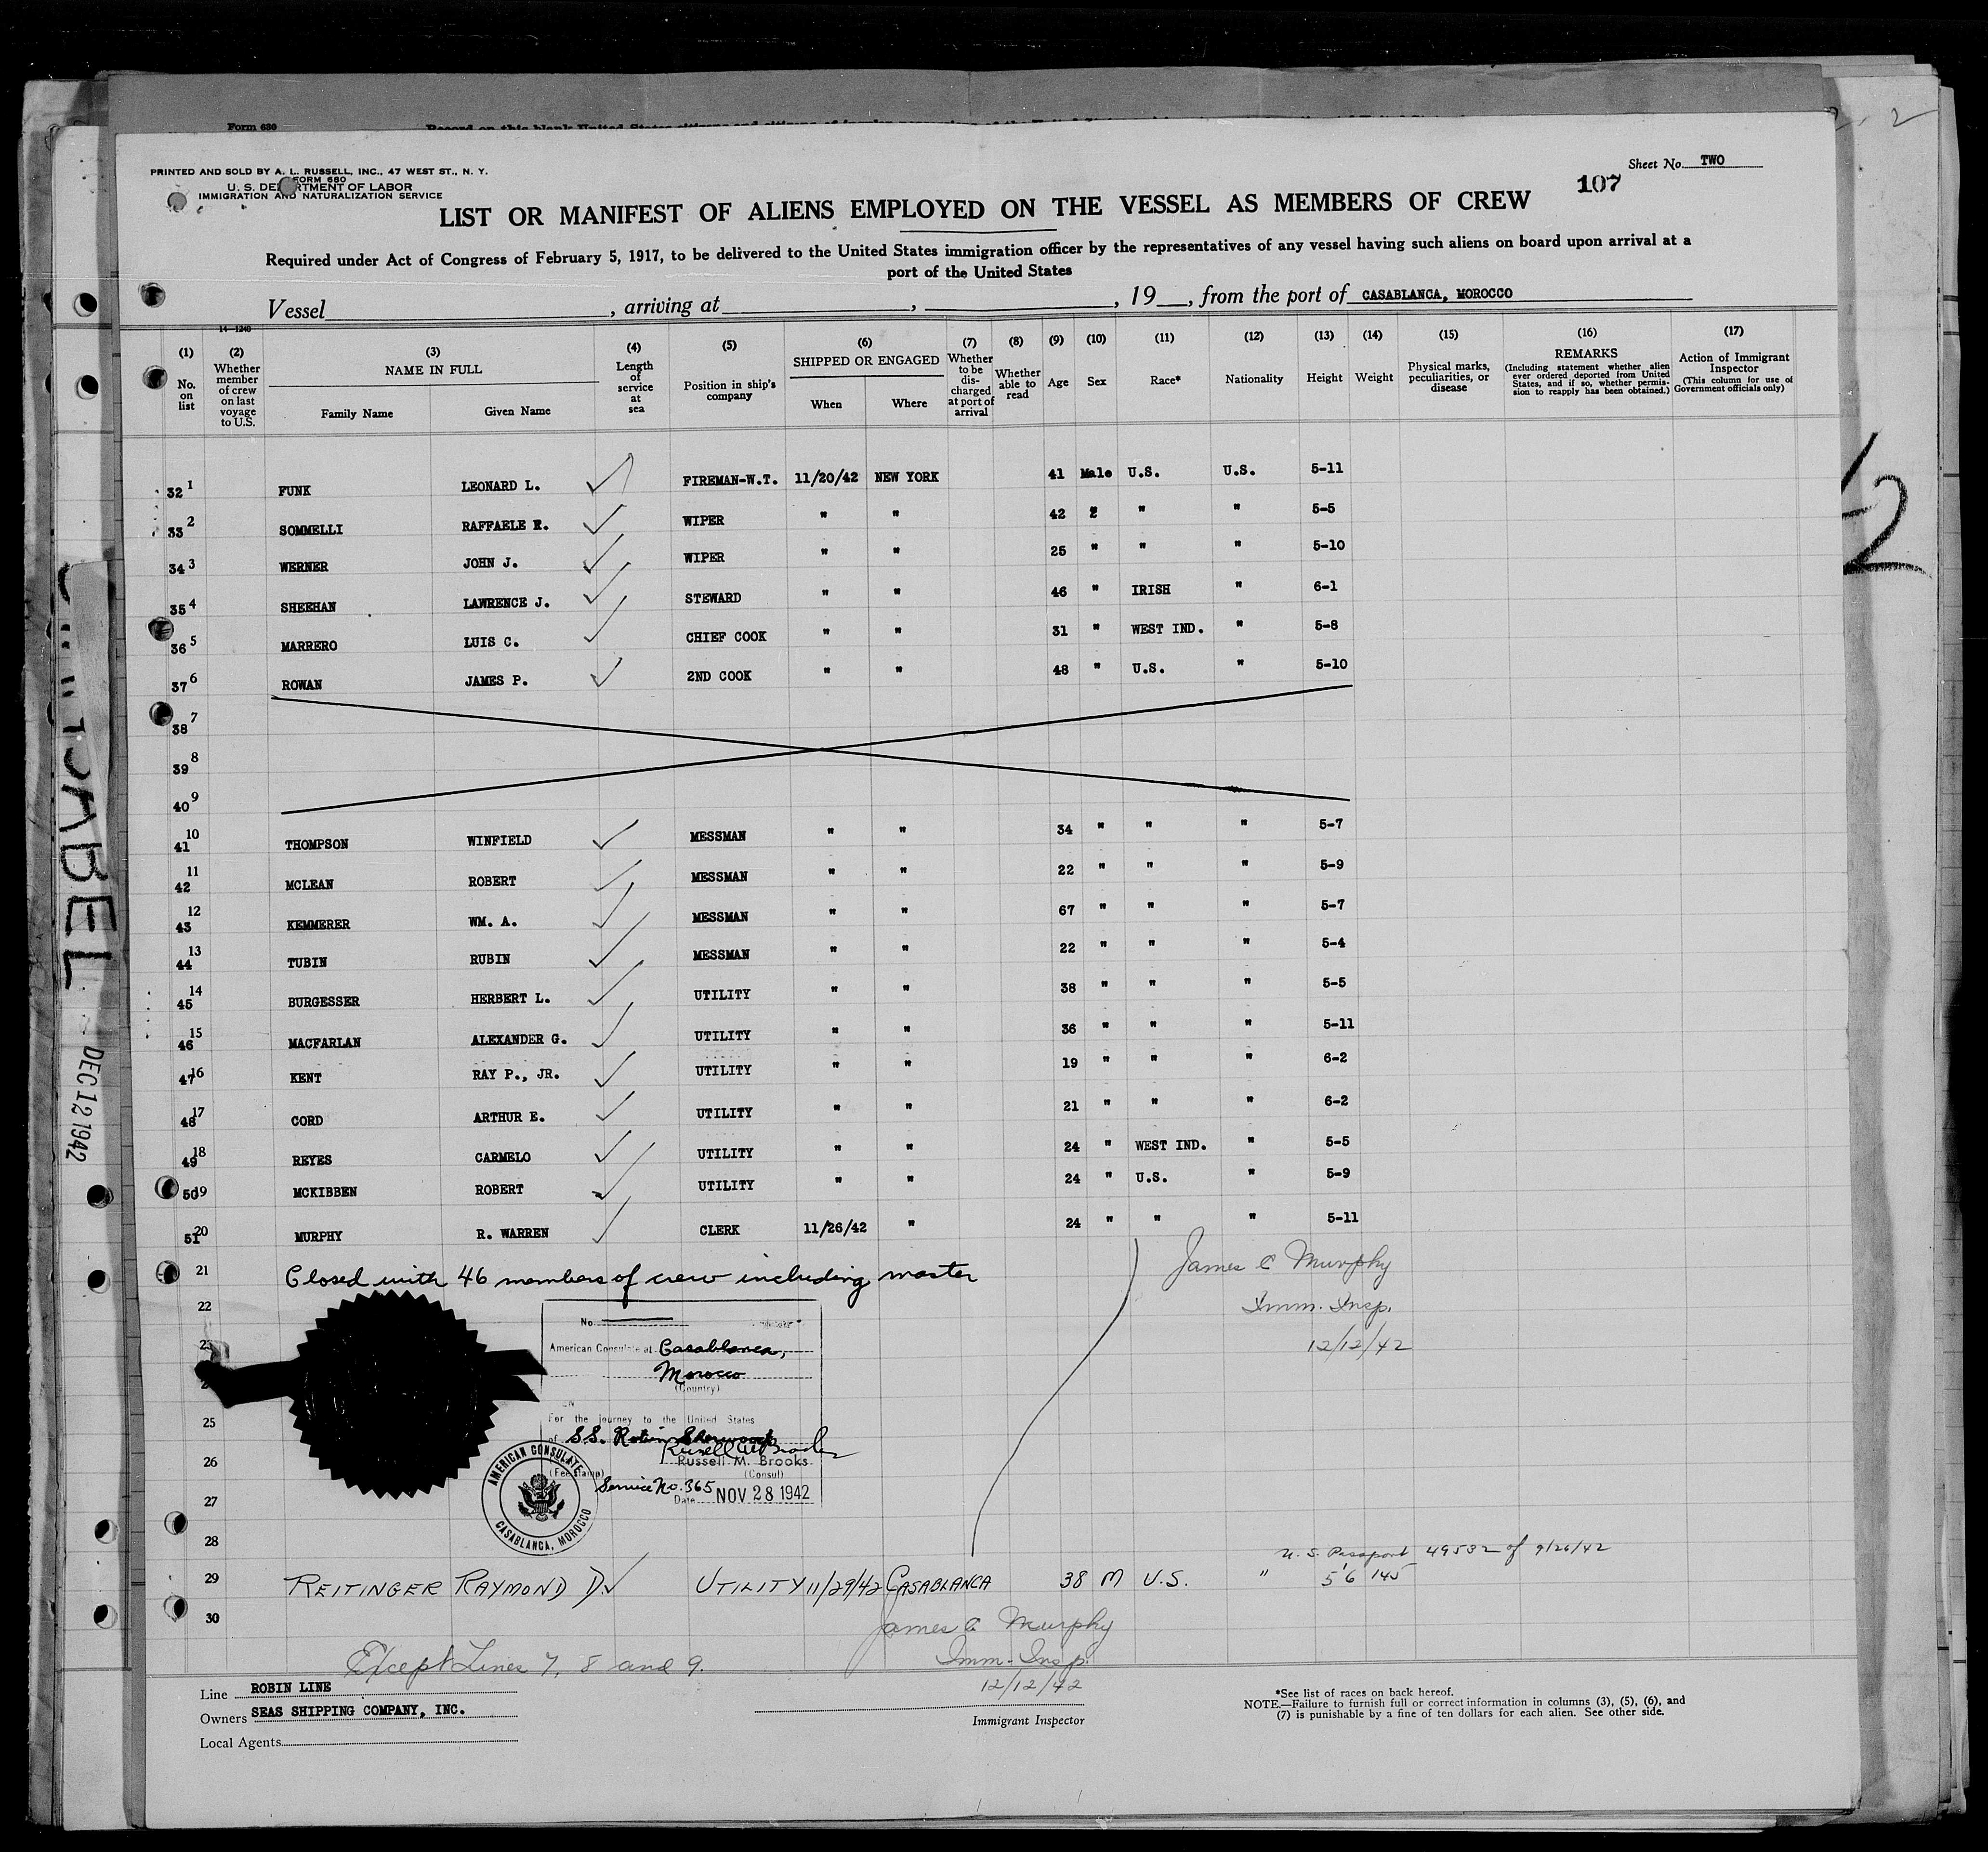 Form 630
Sheet No. TWO
PRINTED AND SOLD BY A. L. RUSSELL, INC., 47 WEST ST., N. Y.
FORM 680
U. S. DEPARTMENT OF LABOR
IMMIGRATION AND NATURALIZATION SERVICE
107
LIST OR MANIFEST OF ALIENS EMPLOYED ON THE VESSEL AS MEMBERS OF CREW
Required under Act of Congress of February 5, 1917, to be delivered to the United States immigration officer by the representatives of any vessel having such aliens on board upon arrival at a
port of the United States
Vessel , arriving at , , 19 , from the port of CASABLANCA, MOROCCO
14—1240
(1) No. on list
(2) Whether member of crew on last voyage to U.S.
(3) NAME IN FULL
Family Name Given Name
(4) Length of service at sea
(5) Position in ship's company
(6) SHIPPED OR ENGAGED
When Where
(7) Whether to be discharged at port of arrival
(8) Whether able to read
(9) Age
(10) Sex
(11) Race*
(12) Nationality
(13) Height
(14) Weight
(15) Physical marks, peculiarities, or disease
(16) REMARKS
(Including statement whether alien ever ordered deported from United States, and if so, whether permission to reapply has been obtained.)
(17) Action of Immigrant Inspector
(This column for use of Government officials only)
32 1 FUNK LEONARD L. FIREMAN-W.T. 11/20/42 NEW YORK 41 Male U.S. U.S. 5-11
33 2 SOMMELLI RAFFAELE R. WIPER " " 42 " " " 5-5
34 3 WERNER JOHN J. WIPER " " 25 " " " 5-10
35 4 SHEEHAN LAWRENCE J. STEWARD " " 46 " IRISH " 6-1
36 5 MARRERO LUIS C. CHIEF COOK " " 31 " WEST IND. " 5-8
37 6 ROWAN JAMES P. 2ND COOK " " 48 " U.S. " 5-10
38 7
39 8
40 9
41 10 THOMPSON WINFIELD MESSMAN " " 34 " " " 5-7
42 11 MCLEAN ROBERT MESSMAN " " 22 " " " 5-9
43 12 KEMMERER WM. A. MESSMAN " " 67 " " " 5-7
44 13 TUBIN RUBIN MESSMAN " " 22 " " " 5-4
45 14 BURGESSER HERBERT L. UTILITY " " 38 " " " 5-5
46 15 MACFARLAN ALEXANDER G. UTILITY " " 36 " " " 5-11
47 16 KENT RAY P., JR. UTILITY " " 19 " " " 6-2
48 17 CORD ARTHUR E. UTILITY " " 21 " " " 6-2
49 18 REYES CARMELO UTILITY " " 24 " WEST IND. " 5-5
50 19 MCKIBBEN ROBERT UTILITY " " 24 " U.S. " 5-9
51 20 MURPHY R. WARREN CLERK 11/26/42 " 24 " " " 5-11
21 Closed with 46 members of crew including master
James C Murphy
Imm. Insp.
12/12/42
22
No.
23
American Consulate at Casablanca,
Morocco
(Country)
25
For the journey to the United States
of S.S. Robin Sherwood
26
Russell M. Brooks
Russell M. Brooks
(Fee stamp) (Consul)
Service No. 365
Date NOV 28 1942
AMERICAN CONSULATE
CASABLANCA, MOROCCO
27
28
U. S. Passport 49532 of 9/26/42
29 REITINGER RAYMOND D. UTILITY 11/29/42 CASABLANCA 38 M U.S. " 5'6 145
30
James C Murphy
Imm. Insp.
12/12/42
Except Lines 7, 8 and 9.
Line ROBIN LINE
Owners SEAS SHIPPING COMPANY, INC.
Local Agents
Immigrant Inspector
*See list of races on back hereof.
NOTE.—Failure to furnish full or correct information in columns (3), (5), (6), and
(7) is punishable by a fine of ten dollars for each alien. See other side.
DEC 12 1942
2